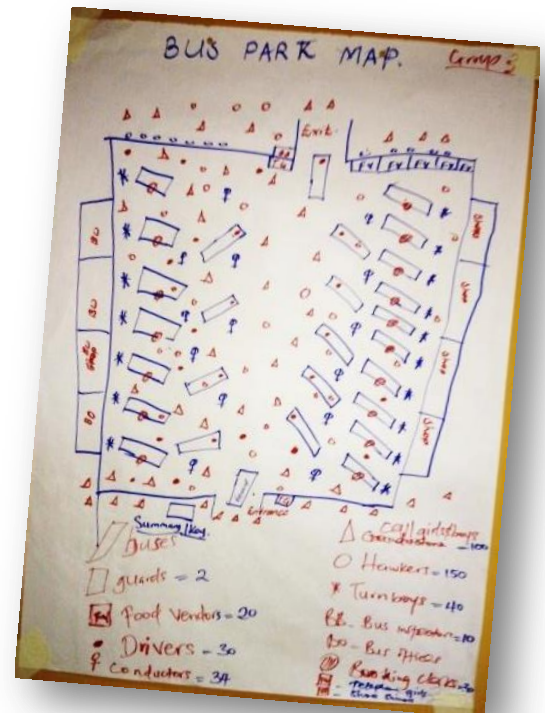 BUS PARK MAP.
Group 3
Exit.
FV FV FV FV FV
BO
BO
BO
Shop
Shop
Shop
Shop
Entrance
Summary/Key.
Buses
guards = 2
Food Vendors = 20
Drivers - 30
Conductors = 34
Call girls/boys
= 100
Hawkers = 150
Turnboys = 40
BB - Bus inspectors = 10
BO - Bus offices
Booking clerks = 30